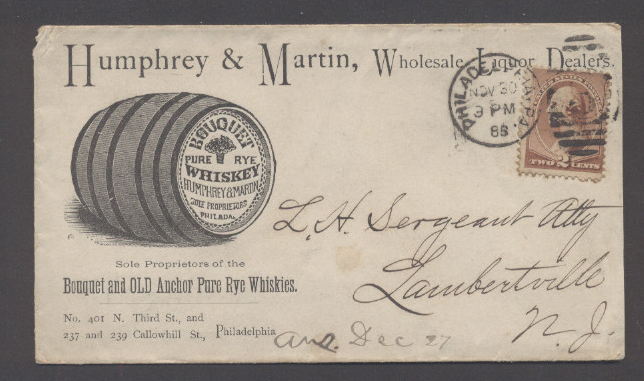 Humphrey & Martin, Wholesale Liquor Dealers.
PHILADELPHIA, PA.
NOV 30
3 PM
TWO 2 CENTS
BOUQUET
PURE RYE
WHISKEY
HUMPHREY & MARTIN
SOLE PROPRIETORS
PHILADA.
L. H. Sergeant Atty
Lambertville
N. J.
Sole Proprietors of the
Bouquet and OLD Anchor Pure Rye Whiskies.
No. 401 N. Third St., and
237 and 239 Callowhill St., Philadelphia
ans. Dec 27